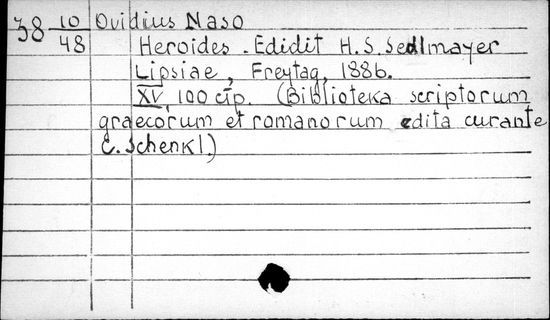 38 10/48 Ovidius Naso
Heroides. Edidit H. S. Sedlmayer
Lipsiae, Freytag, 1886.
XV, 100 стр. (Biblioteka scriptorum
graecorum et romanorum edita curante
C. Schenkl.)